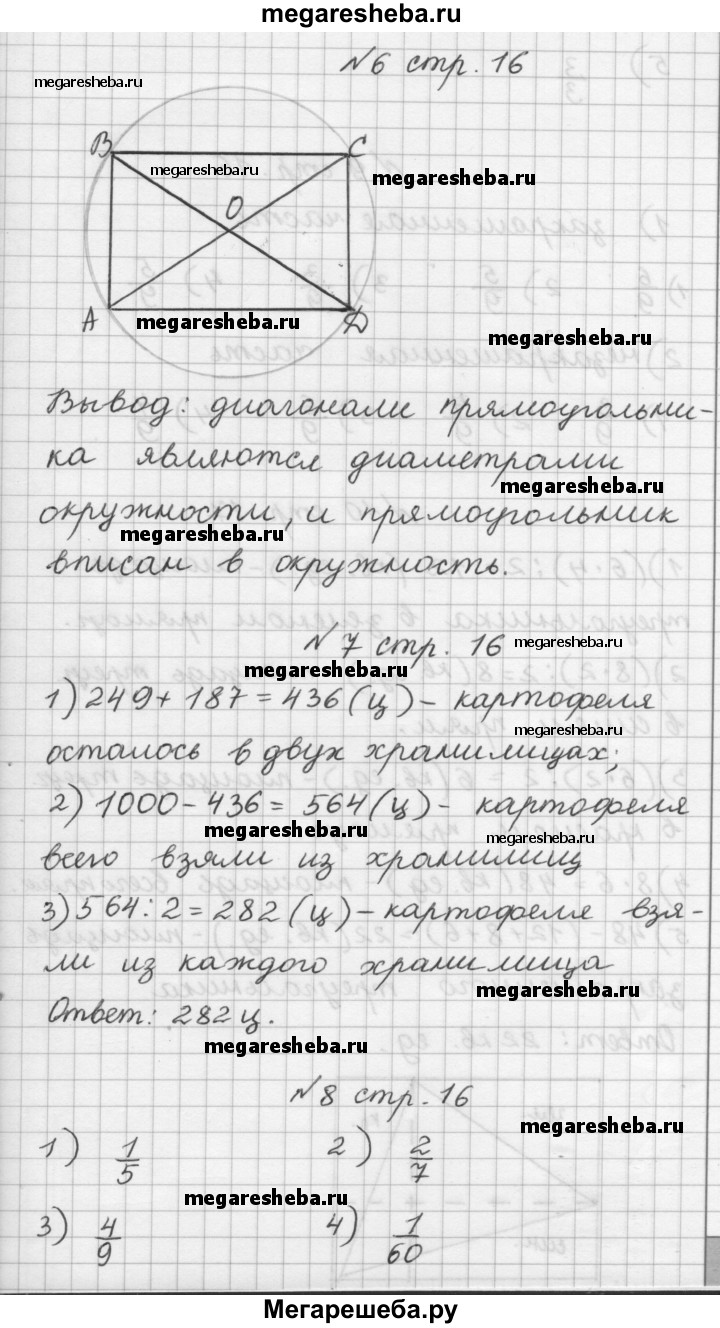 megaresheba.ru
№6 стр. 16
megaresheba.ru
B
C
megaresheba.ru
megaresheba.ru
O
A
D
megaresheba.ru
megaresheba.ru
Вывод: диагонали прямоугольни-
ка являются диаметрами
megaresheba.ru
окружности, и прямоугольник
megaresheba.ru
вписан в окружность.
№7 стр. 16
megaresheba.ru
megaresheba.ru
1) 249 + 187 = 436 (ц) - картофеля
megaresheba.ru
осталось в двух хранилищах;
2) 1000 - 436 = 564 (ц) - картофеля
megaresheba.ru
megaresheba.ru
всего взяли из хранилищ
3) 564 : 2 = 282 (ц) - картофеля взя-
ли из каждого хранилища
megaresheba.ru
Ответ: 282 ц.
megaresheba.ru
№8 стр. 16
megaresheba.ru
1) 1/5 2) 2/7
megaresheba.ru
3) 4/9 4) 1/60
Мегарешеба.ру